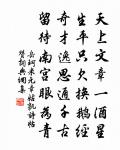 天上文章一酒星
生平只欠換鵝經
奇才逸思通千古
留待南宮眼為青
岳珂米元章詩帖
贊詞典網集